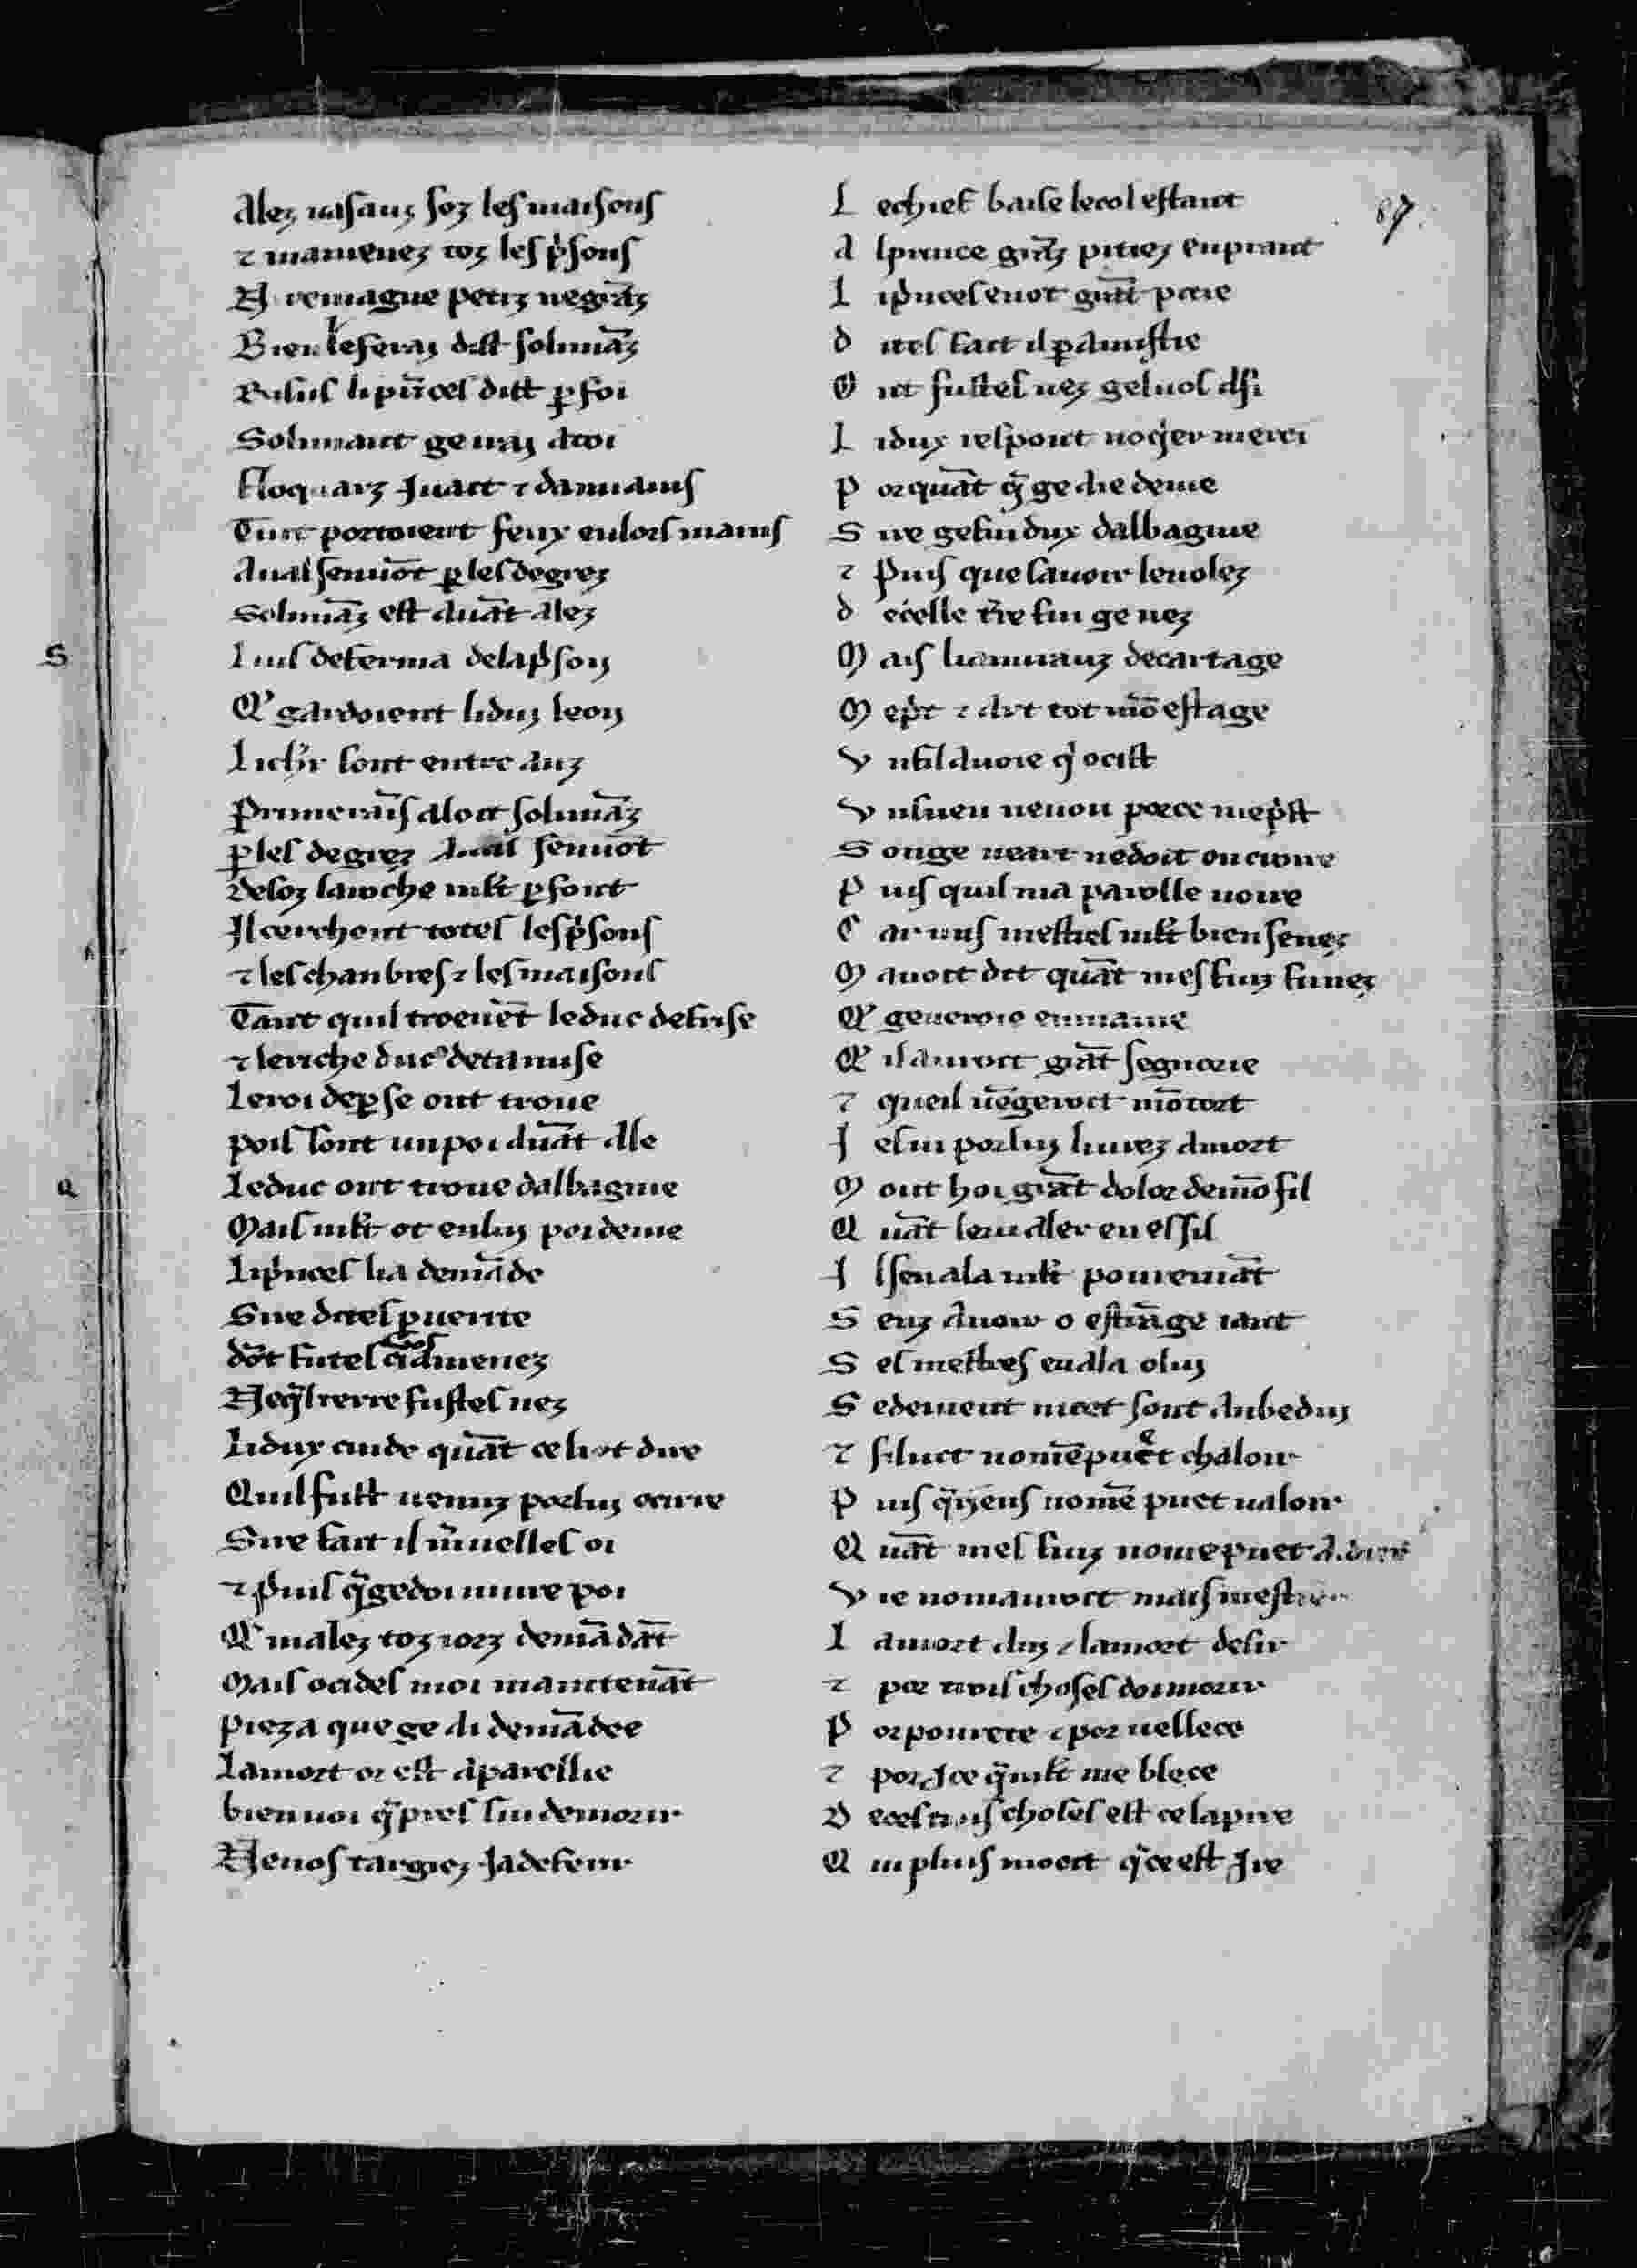 Alez uasauz soz les maisons
⁊ mamenez toz les p̓sons
N remagne petiz ne gr̄az
Bien le ferai dist solimāz
Rasus li p̓nces dist ꝑ foi
Solimant ge irai a toi
Floquarz Juact ⁊ danuains
Tuit portoient feux en lors mains
Aual senuōt ꝑ les degrez
Solimāz est auāt alez
Luis deferma de la p̓son
Q̓ gardoient li dui leon
Li ch̓r sont entre auz
Primerāis aloit solimāz
ꝑ les degrez Aual senuōt
Desoz la roche ml̓t ꝑfont
Jl cerchent totes les p̓sons
⁊ les chanbres ⁊ les maisons
Tant quil troeuēt le duc de frise
⁊ le riche duc de tamise
Le roi de ꝑse ont troue
Pois sont un poi auāt ale
Le duc ont troue dalbagnie
Mais ml̓t ot en lui poi de uie
Li p̓nces li a demāde
Sire dites ꝑ uerite
Dōt futes ci amenez
N eq̓l terre fustes nez
Li dux cuide quāt ce li ot dire
Quil fust uenuz por lui ocirre
Sire fait il m̄uelles oi
⁊ puis q̄ ge doi uiure poi
Q̓ malez toz iorz demādāt
Mais ocides moi maintenāt
Pieza que ge ai demādee
La mort or est apareillie
bien uoi q̄ pres sui de morir
N e uos targiez Ja de ferir
L e chief baise le col estant
A l prince grāz pitiez en prant
L i p̓nces en ot grāt pitie
D ites fait il ꝑ amistie
O u fustes nez ge uos afi
L i dux respont no q̓er merci
P or quāt q̄ ge aie de uie
S ire ge sui dux dalbagnie
⁊ puis que sauoir le uolez
D e celle t̄re sui ge nez
M ais li amirauz de cartage
M e p̓t ⁊ art tot mō estage
U n fil auoie q̓ ocist
U n suen neuou por ce me p̓st
S onge neait ne doit on croire
P uis quil ma parolle uoire
C ar uns mestres ml̓t bien senez
M auoit dit quāt mes fiuz fu nez
Q̓ ge uerroie en ma uie
Q̓ il auroit grāt segnorie
⁊ que il uēgeroit mō tort
J e sui por lui liurez a mort
M out hoi grāt dolor de mō fil
Q uāt lenualer en essil
J l sen ala ml̓t pouremāt
S enz auoir o estrāge iant
S es mestres en ala o lui
S edement nicet sont anbedui
⁊ sil uict no mē puet chaloir
P uis q̄ riens no mē puet ualoir
Q uāt mes fiuz no me puet
U ie no mauroit mais
L a mort aim ⁊ la mort desir
⁊ por trois choses doi morir
P or pourete ⁊ por uellece
⁊ por Jre q̄ ml̓t me blece
D e ces trois choses est ce la pire
Q ui plus moert q̓ ce est Jre
87.
S